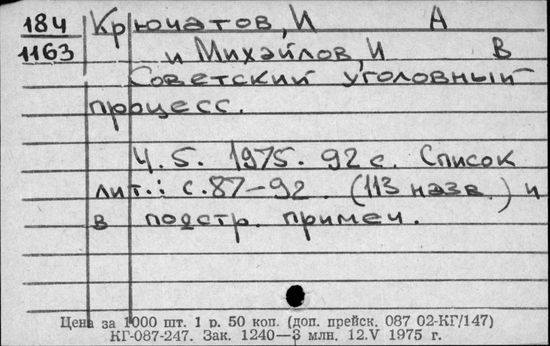 184 Крючатов, И А
1163 и Михайлов, И В
Советский уголовный
процесс.
Ч. 5. 1975. 92 с. Список
лит.: с. 87–92. (113 назв.) и
в подстр. примеч.
Цена за 1000 шт. 1 р. 50 коп. (доп. прейск. 087 02-КГ/147)
КГ-087-247. Зак. 1240—3 млн. 12.V 1975 г.